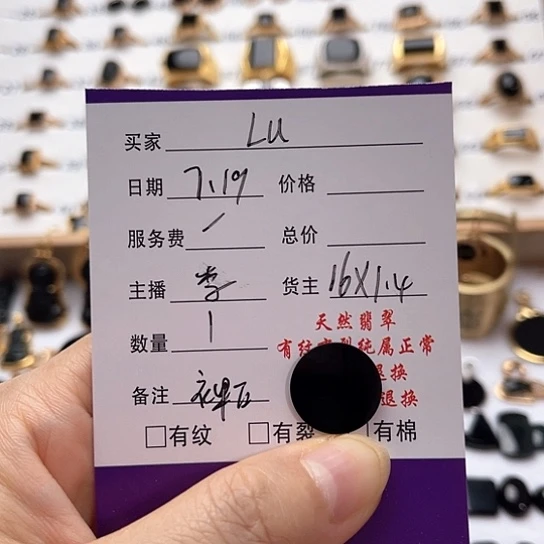 买家 LU
日期 7.19 价格
服务费 / 总价
主播 李 货主 16X1.4
数量 1
天然翡翠
有纹有裂纯属正常
退换
备注
退换
□有纹 □有裂 有棉